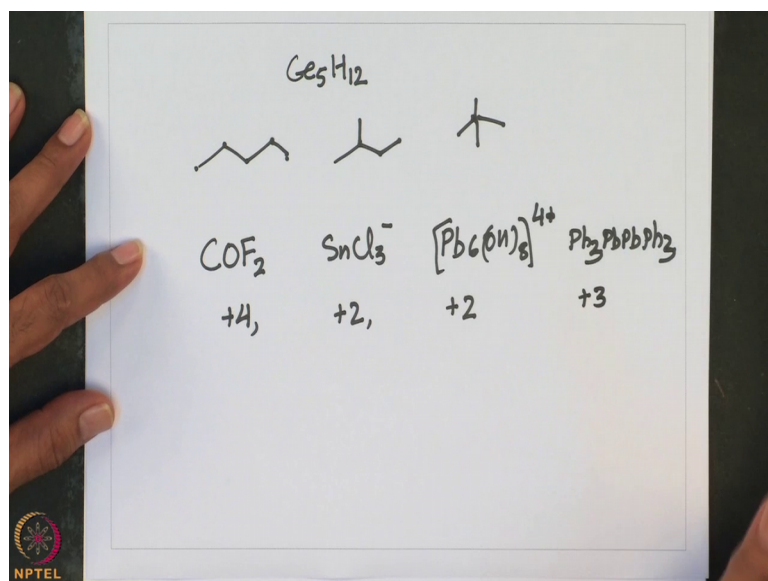 Ge₅H₁₂
COF₂ SnCl₃⁻ [Pb₆(OH)₈]⁴⁺ Ph₃PbPbPh₃
+4, +2, +2 +3
NPTEL